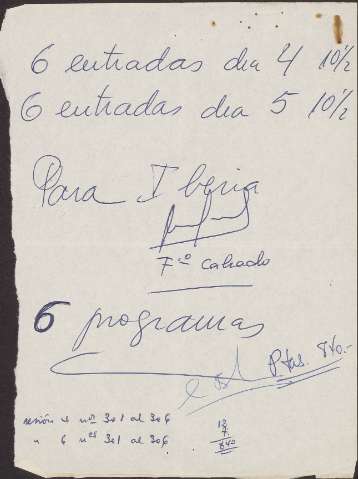 6 entradas dia 4 10½
6 entradas dia 5 10½
Para Iberia
Fco Calzado
6 programas
Ptas. 840.-
sesión 4 nos 301 al 306
" 6 nos 301 al 306
12
7
840